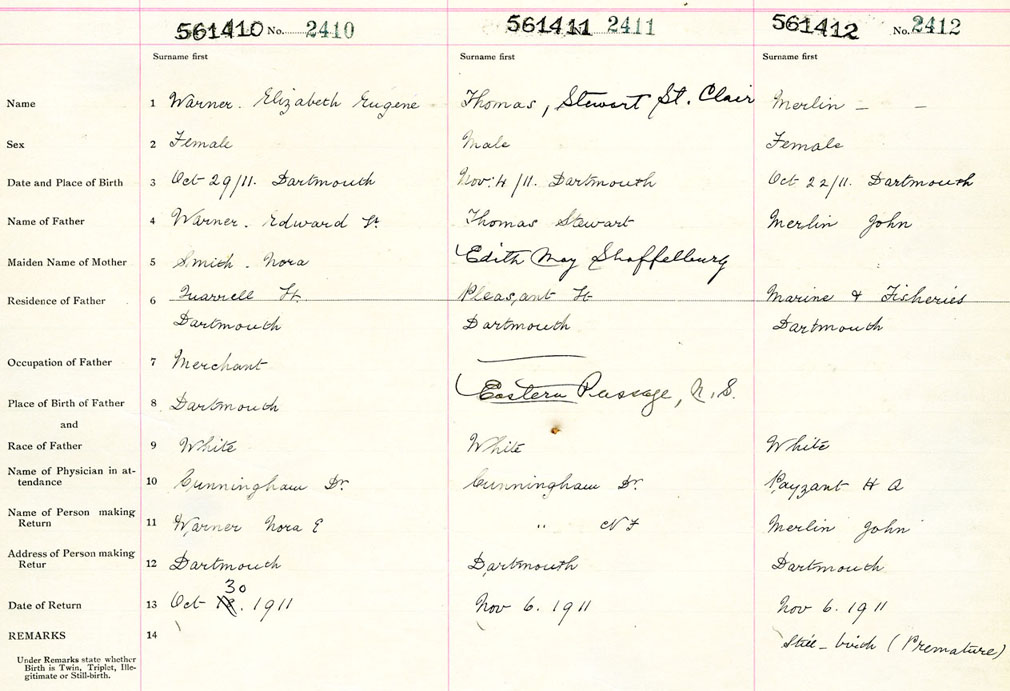 561410 No. 2410 561411 No. 2411 561412 No. 2412
Surname first Surname first Surname first
Name 1 Warner. Elizabeth Eugene Thomas, Stewart St. Clair Merlin — —
Sex 2 Female Male Female
Date and Place of Birth 3 Oct 29/11. Dartmouth Nov. 4/11. Dartmouth Oct 22/11. Dartmouth
Name of Father 4 Warner. Edward St. Thomas Stewart Merlin John
Maiden Name of Mother 5 Smith. Nora Edith May Shaffelburg
Residence of Father 6 St. Pleasant St. Marine & Fisheries
Dartmouth Dartmouth Dartmouth
Occupation of Father 7 Merchant
Place of Birth of Father 8 Dartmouth Eastern Passage, N.S.
and
Race of Father 9 White White White
Name of Physician in at-
tendance 10 Cunningham Dr. Cunningham Dr. Payzant H A
Name of Person making
Return 11 Warner Nora E " N F Merlin John
Address of Person making
Retur 12 Dartmouth Dartmouth Dartmouth
30
Date of Return 13 Oct . 1911 Nov 6. 1911 Nov 6. 1911
REMARKS 14 Still-birth (Premature)
Under Remarks state whether
Birth is Twin, Triplet, Ille-
gitimate or Still-birth.